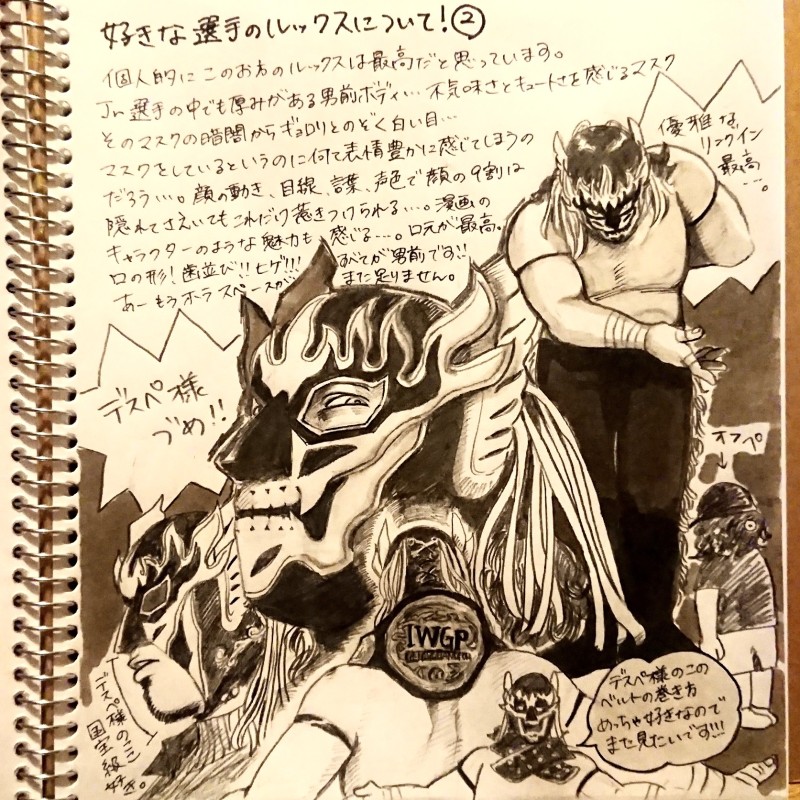 好きな選手のルックスについて!②
個人的にこのお方のルックスは最高だと思っています。
Jr.選手の中でも厚みがある男前ボディ…不気味さとキュートさを感じるマスク
そのマスクの暗闇からギョロリとのぞく白い目…
マスクをしているというのに何て表情豊かに感じてしまうの
だろう…。顔の動き、目線、言葉、声色で顔の9割は
隠れてさえいてもこれだけ惹きつけられる…。漫画の
キャラクターのような魅力も感じる…。口元が最高。
口の形!歯並び!!ヒゲ!!!すべてが男前です!!
あーもうホラスペースが
まだ足りません。
優雅な
リングイン
最高
…。
デスペ様
づめ!!
オフペ
IWGP
デスペ様のここ
国宝級
好き。
デスペ様のこの
ベルトの巻き方
めっちゃ好きなので
また見たいです!!!